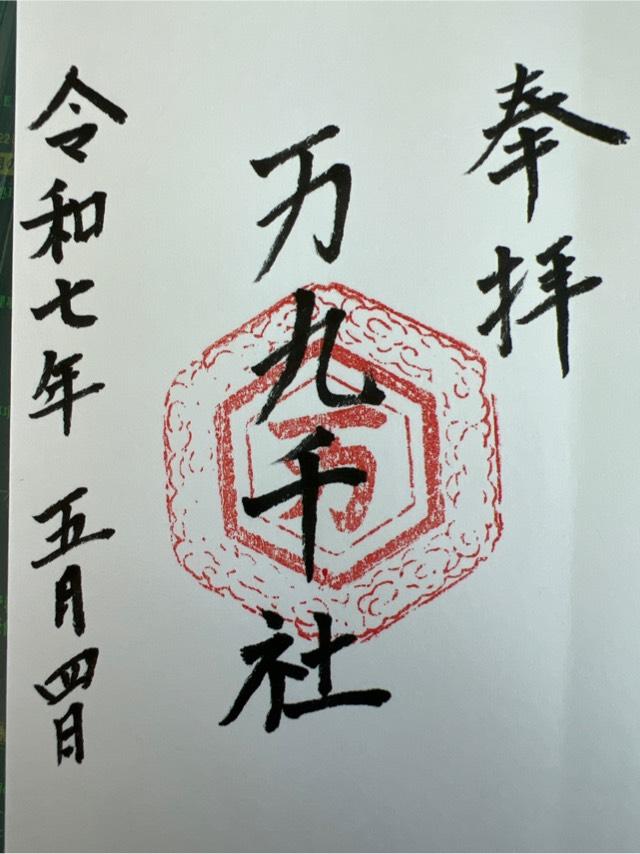 奉拝
万九千社
万
令和七年 五月四日